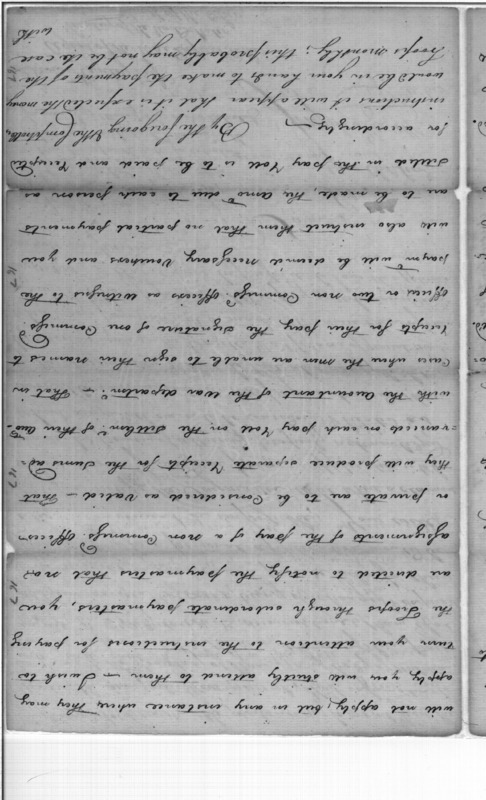 will not apply; but in any instance where they may
apply, you will strictly attend to them — I wish to
turn your attention to the instructions for paying
the Troops through subordinate paymasters, you
are directed to notify the paymasters that no
assignments of the pay of a non Commiss'd officer
or private are to be Considered as Valid — That
they will produce separate receipts for the Sums ad-
=vanced on each pay roll on the Settlem.t of their
with the Accountant of the War departm.t — That in
Cases where the men are unable to sign their names to
receipts for their pay, the signature of one Commiss'd
officer or two non Commiss'd officers as witnesses to the
paym.t will be deem'd necessary Vouchers and you
will also instruct them that no partial payments
are to be made, the amo.t due to each person as
settled in the pay roll is to be paid and receipted
for accordingly —
By the foregoing & the Comptrollers
instructions it will appear that it is expected the money
would be in your hands to make the payments of the
Troops monthly; this probably may not be the case
with